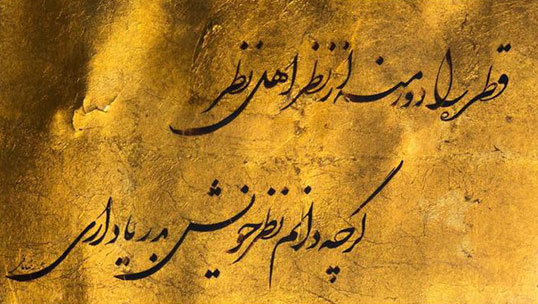 قطره را دور منه از نظر اهل نظر
گرچه دانم نظر خویش به دریا داری